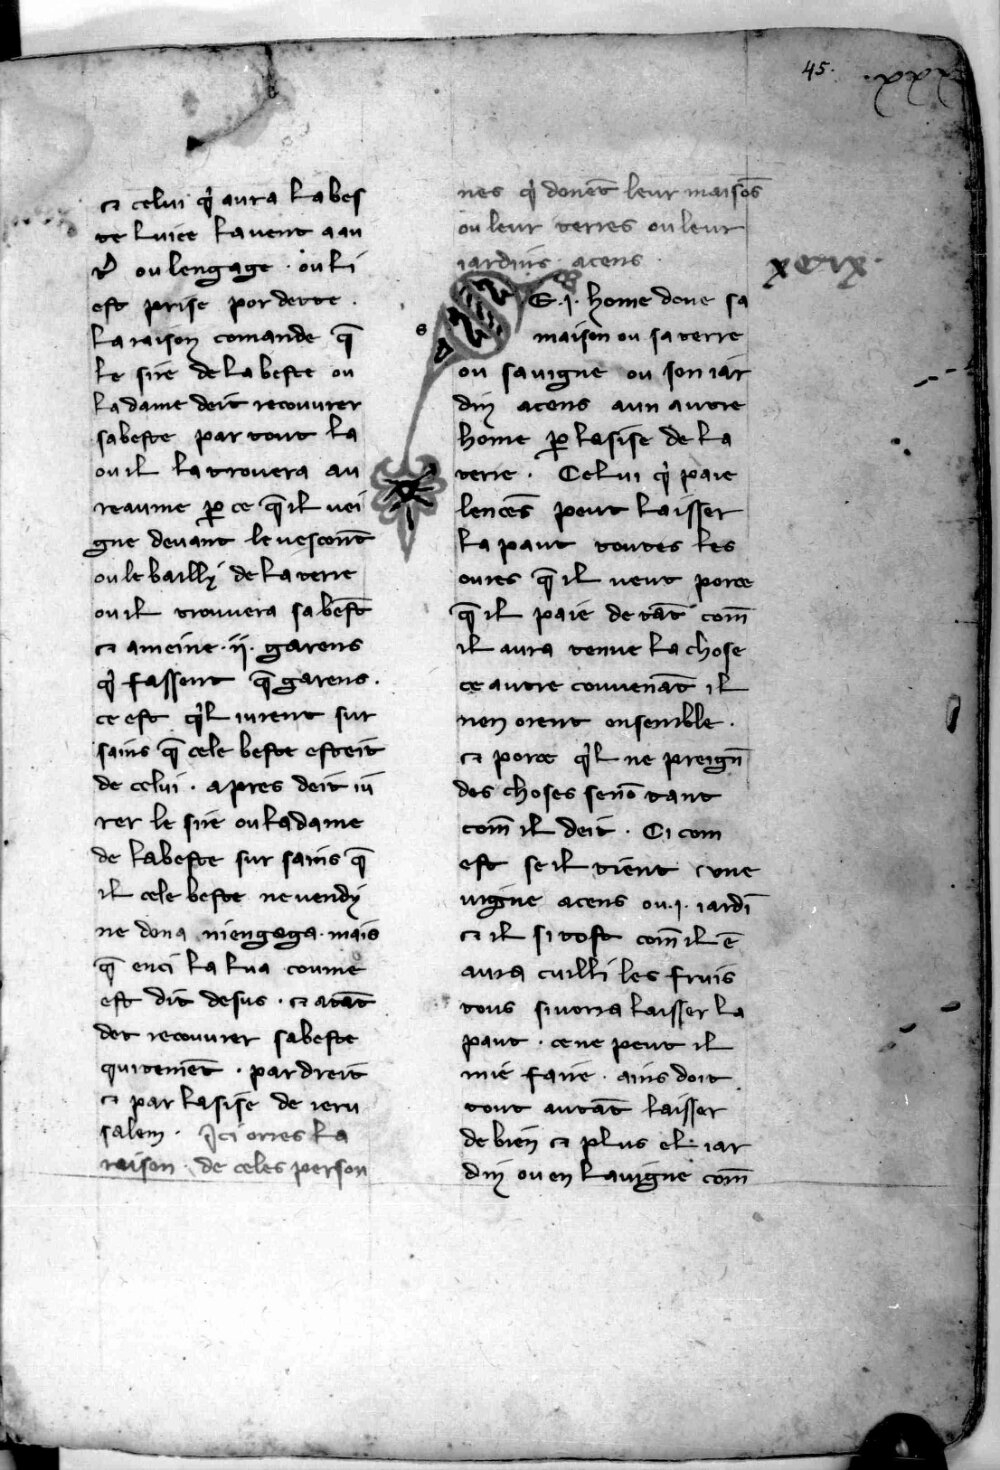 45.
⁊ celui q̇ aura la bes
te luice la uent a au
t̉ ou lengage · ou li
est prise por dette .
la raison comande q̄
le sire de la beste ou
la dame deit recouurer
sa beste par tout la
ou il la trouera au
reaume ꝑ ce q̄ il uei
gne deuant le uescont
ou le bailly de la terre
ou il trouuera sa beste
⁊ ameine .ij. garens
q̇ fassent q̄ garens .
ce est q̇l iurent sur
sains q̄ cele beste esteit
de celui . apres deit iu
rer le sire ou la dame
de la beste sur sains q̄
il cele beste ne uendy
ne dona ni engaga . mais
q̄ enci la lua coume
est dit desus . ⁊ atāt
det recouurer sa beste
quitemēt . par dreit
⁊ par lasise de ieru
salem . Ici orres la
raison de celes person
nes q̇ donēt leur maisōs
ou leur terres ou leur
iardins acens .
xciix.
s
SE .i. home done sa
maison ou sa terre
ou sa uigne ou son iar
din acens a un autre
home ꝑ lasise de la
terre . Celui q̇ paie
lencēs peut laisser
la paut toutes les
oures q̄ il ueut porce
q̄ il paie de tāt com̄
il aura tenue la chose
ce autre couuenāt il
nen orent ensemble .
⁊ porce q̇l ne preign̄
des choses senō tant
com̄ il deit . Ci com
est se il tient une
uigne acens ou .i. iardī
⁊ il si tost com̄ il ē
aura cuilli les fruis
tous si uorra laisser la
paut . ce ne peut il
mie faire . ains doit
tout autāt laisser
de bien ⁊ plus el iar
din ou en la uigne com̄